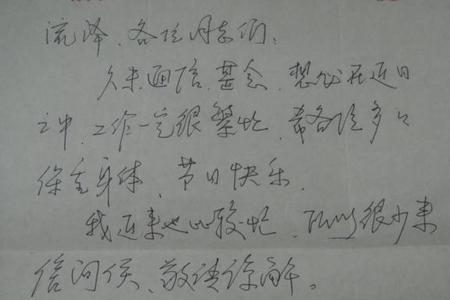 流泽、各位同志们:
久未通信,甚念,想必在近日
之中,工作一定很繁忙,希各位多々
保重身体,节日快乐。
我近来也比较忙,所以很少来
信问侯、敬请谅解。